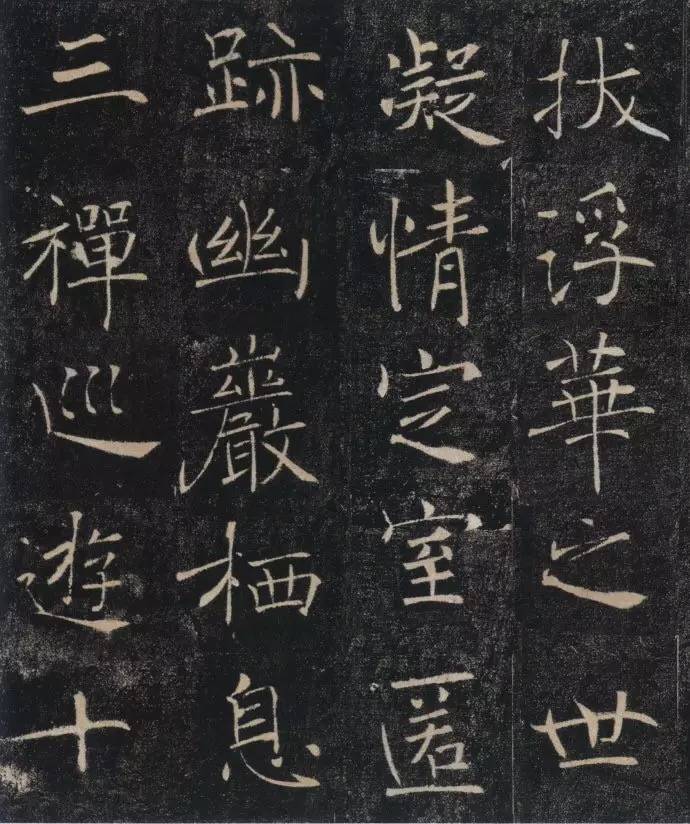 拔浮華之世
凝情定室匿
跡幽巖栖息
三禪巡遊十